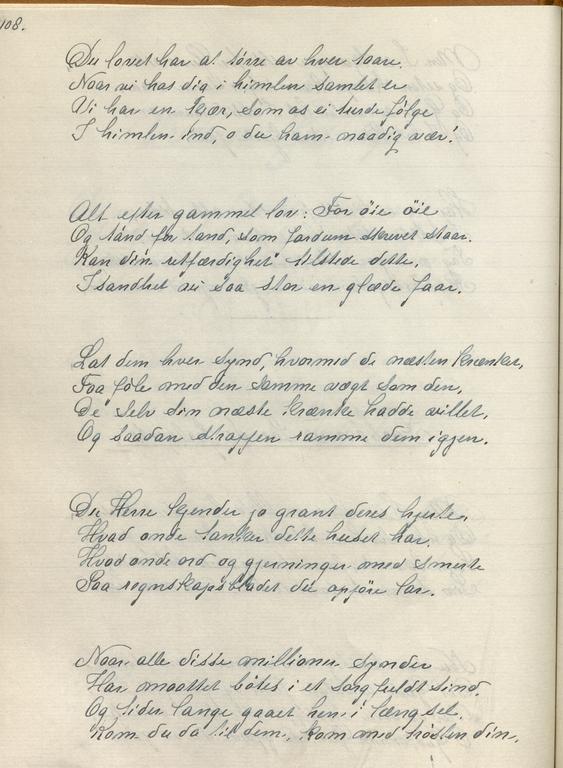 108.
Du lovet har at tørre av hver taare.
Naar vi hos dig i himlen samlet er
Vi har en kjær, som os ei turde følge
I himlen ind, o du ham naadig vær!
Alt efter gammel lov: For öie öie
Og tand for tand, som fordum skrevet staar.
Kan din retfærdighet tilstede dette,
I sandhet vi saa stor en glæde faar.
Lat dem hver synd, hvormed de næsten krænker,
Faa føle med den samme vægt som den,
De selv din næste krænke hadde villet,
Og saadan straffen ramme dem igjen.
Du Herre kjender jo grant deres hjerte,
Hvad onde tanker dette huset har.
Hvad onde ord og gjerninger med smerte
Paa regnskapsbladet du opføre lar.
Naar alle disse millioner synder
Har maattet bötes i et sorgfuldt sind.
Og tider lange gaaet hen i længsel.
Kom du da til dem, kom med trösten din.